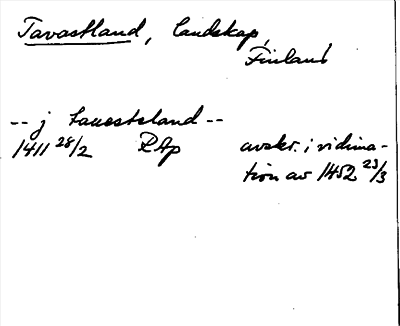 Tavastland, landskap,
Finland
-- j Taueststland --
1411 28/2 RAp avskr. i vidima-
tion av 1452 23/3